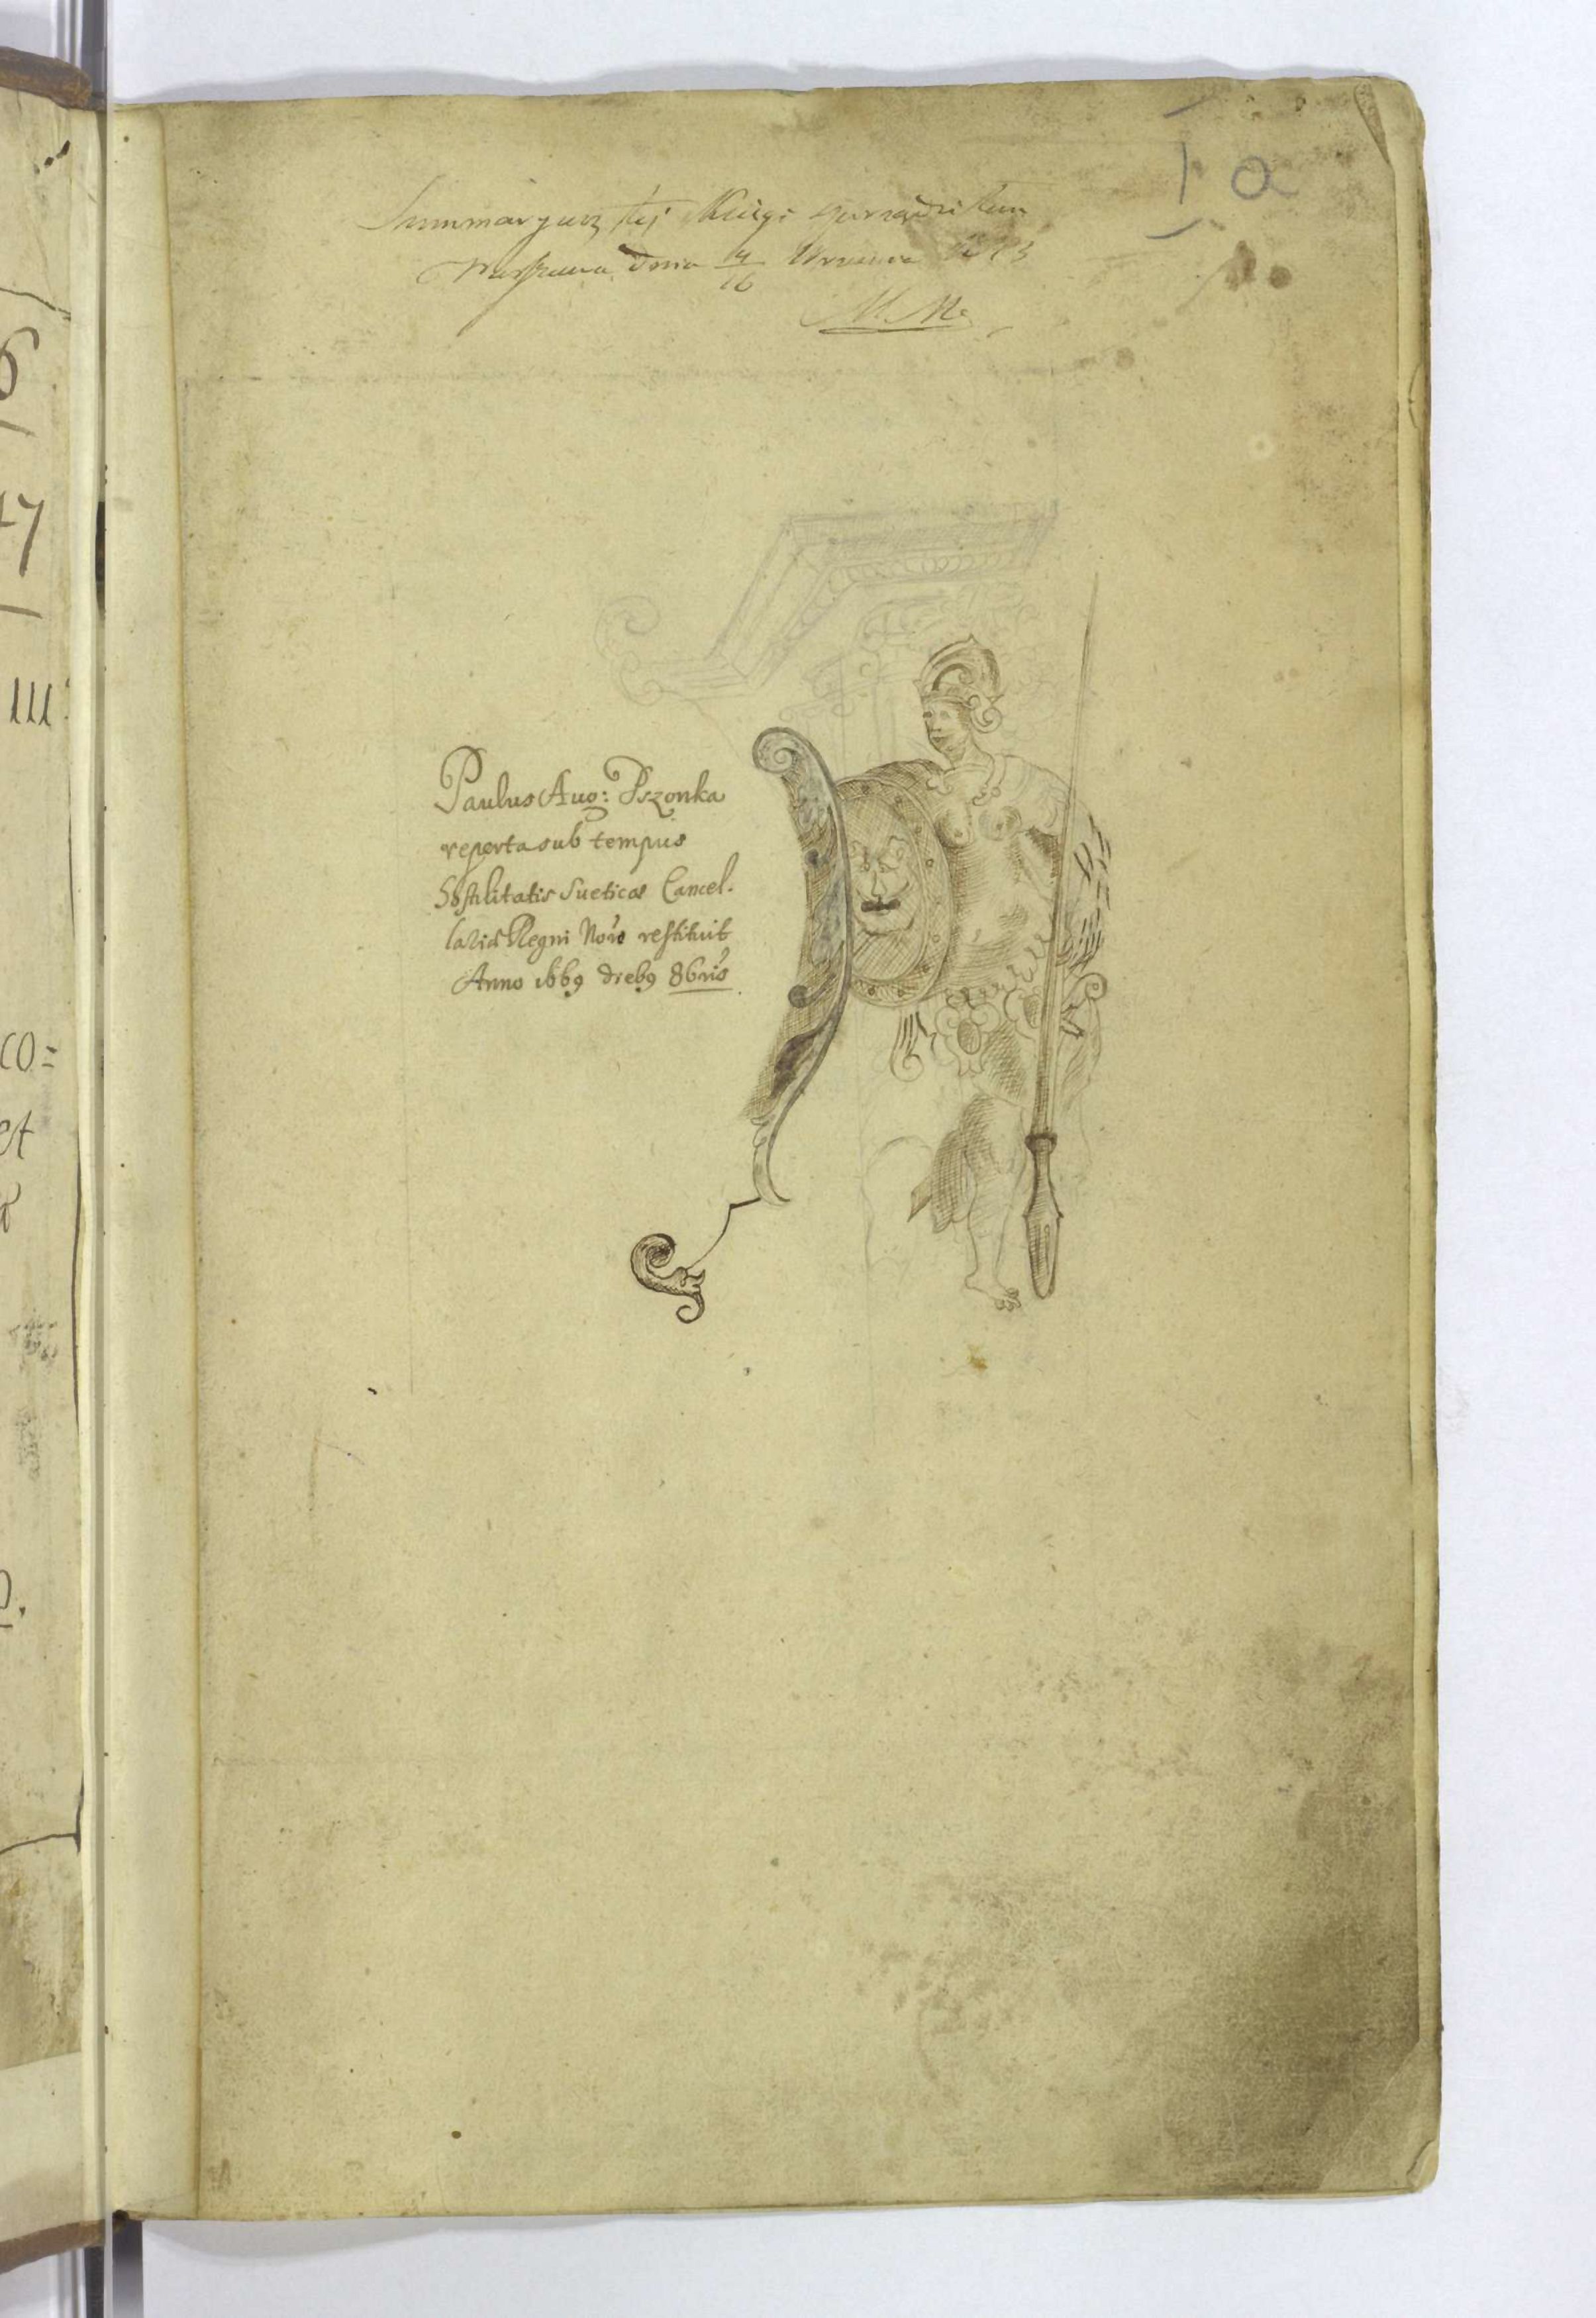 1 a
Summaryusz tej Księgi sporządziłem
Warszawa dnia 4/16 Września
M. M.
Paulus Aug: Pszonka
reperta sub tempus
Hostilitatis Sueticæ Cancel-
lariæ Regni Novo restituit
Anno 1669 dieb9 8bris
6
47
III
CO=
et